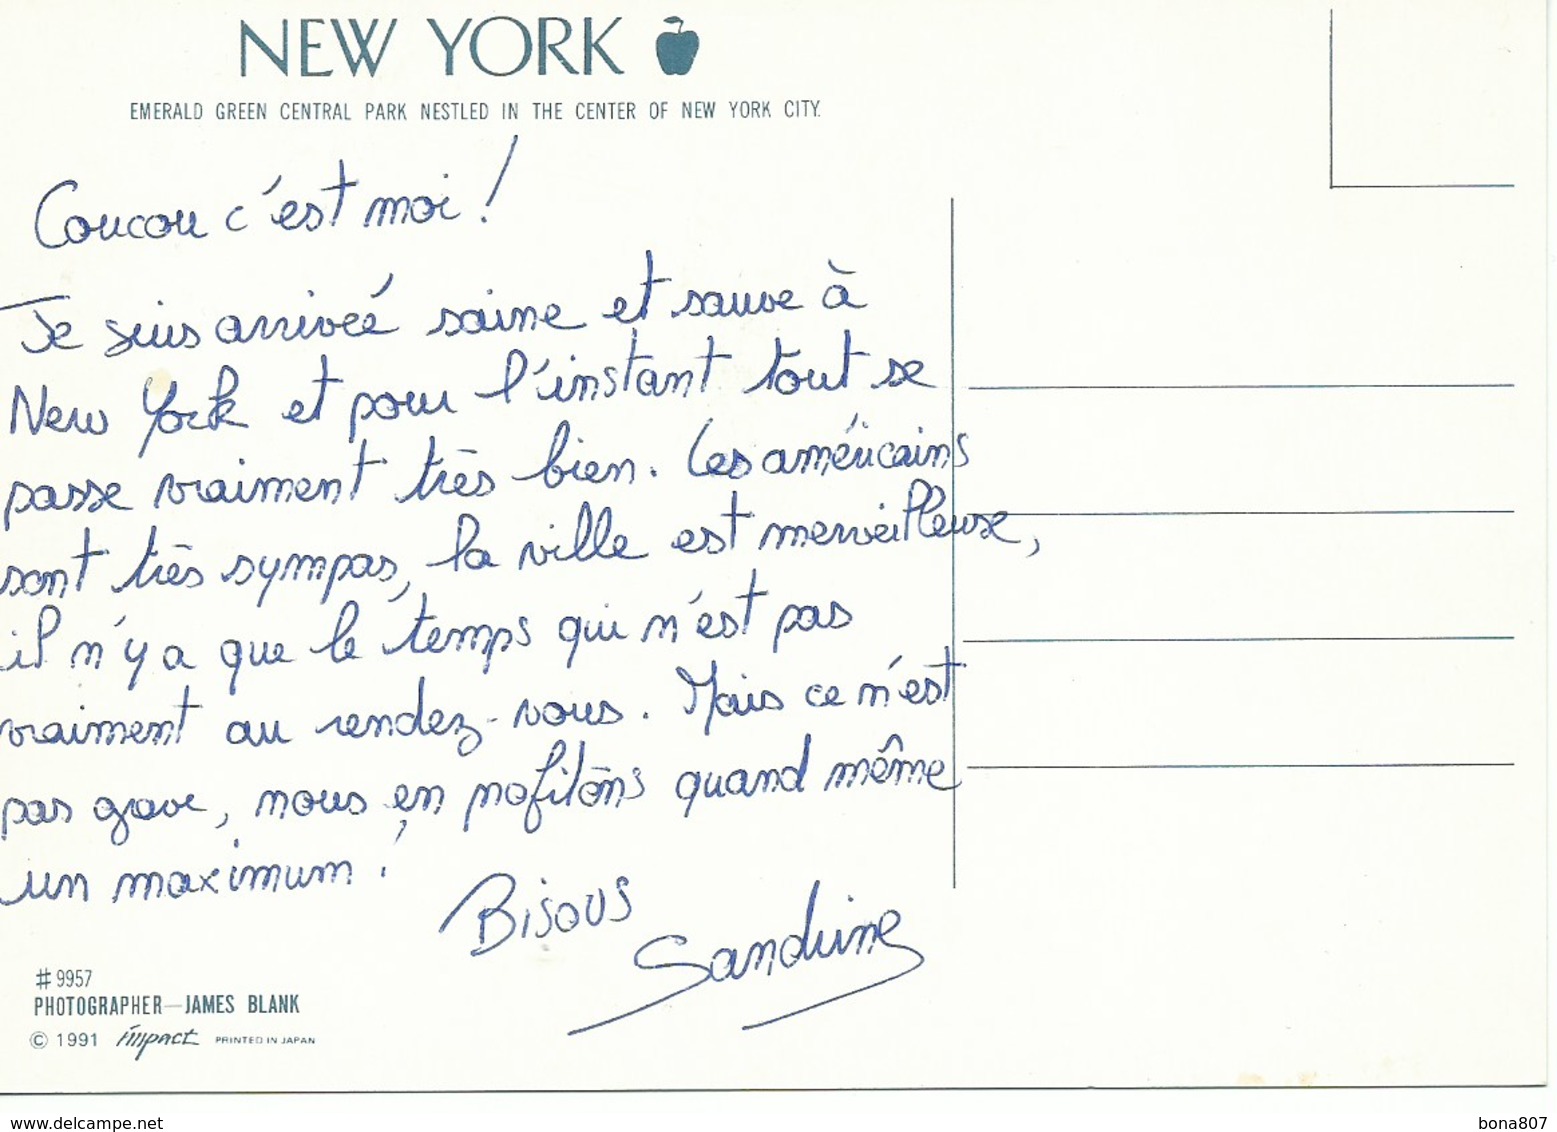 NEW YORK
EMERALD GREEN CENTRAL PARK NESTLED IN THE CENTER OF NEW YORK CITY.
Coucou c'est moi !
Je suis arrivée saine et sauve à
New York et pour l'instant tout se
passe vraiment très bien. Les américains
sont très sympas, la ville est merveilleuse,
il n'y a que le temps qui n'est pas
vraiment au rendez-vous. Mais ce n'est
pas grave, nous en profitons quand même
un maximum !
Bisous
Sandrine
# 9957
PHOTOGRAPHER—JAMES BLANK
© 1991 impact PRINTED IN JAPAN
www.delcampe.net
bona807